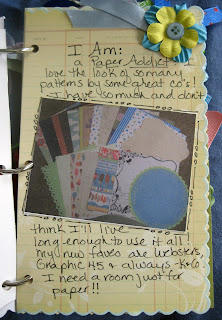 I Am:
a Paper Addict! I
love the look of so many
patterns by some great co's!
I have so much and don't
think I'll live
long enough to use it all!
my new faves are websters,
Graphic 45 & always K+Co
I need a room just for
paper!!